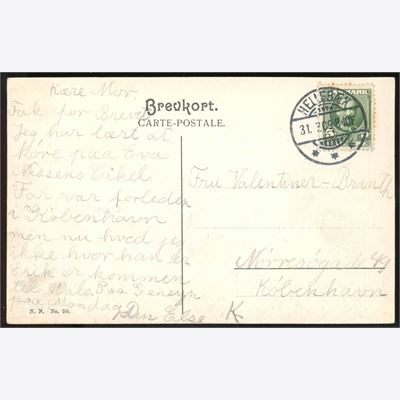 Kære Mor.
Tak for Brevet
Jeg har lært at
Köre paa Eva
Nissens Cikel
Far var forleden
i København
men nu hved jeg
ikke hvor han er
Erik er kommen
til Paa Gensyn
paa Mandag
Din Else
Brevkort.
CARTE-POSTALE.
HELLEBÆK
31.7.09
MARK
5
Fru Valentiner-Branth
Nörresögade 49
Köbenhavn
K
N. N. No. 50.